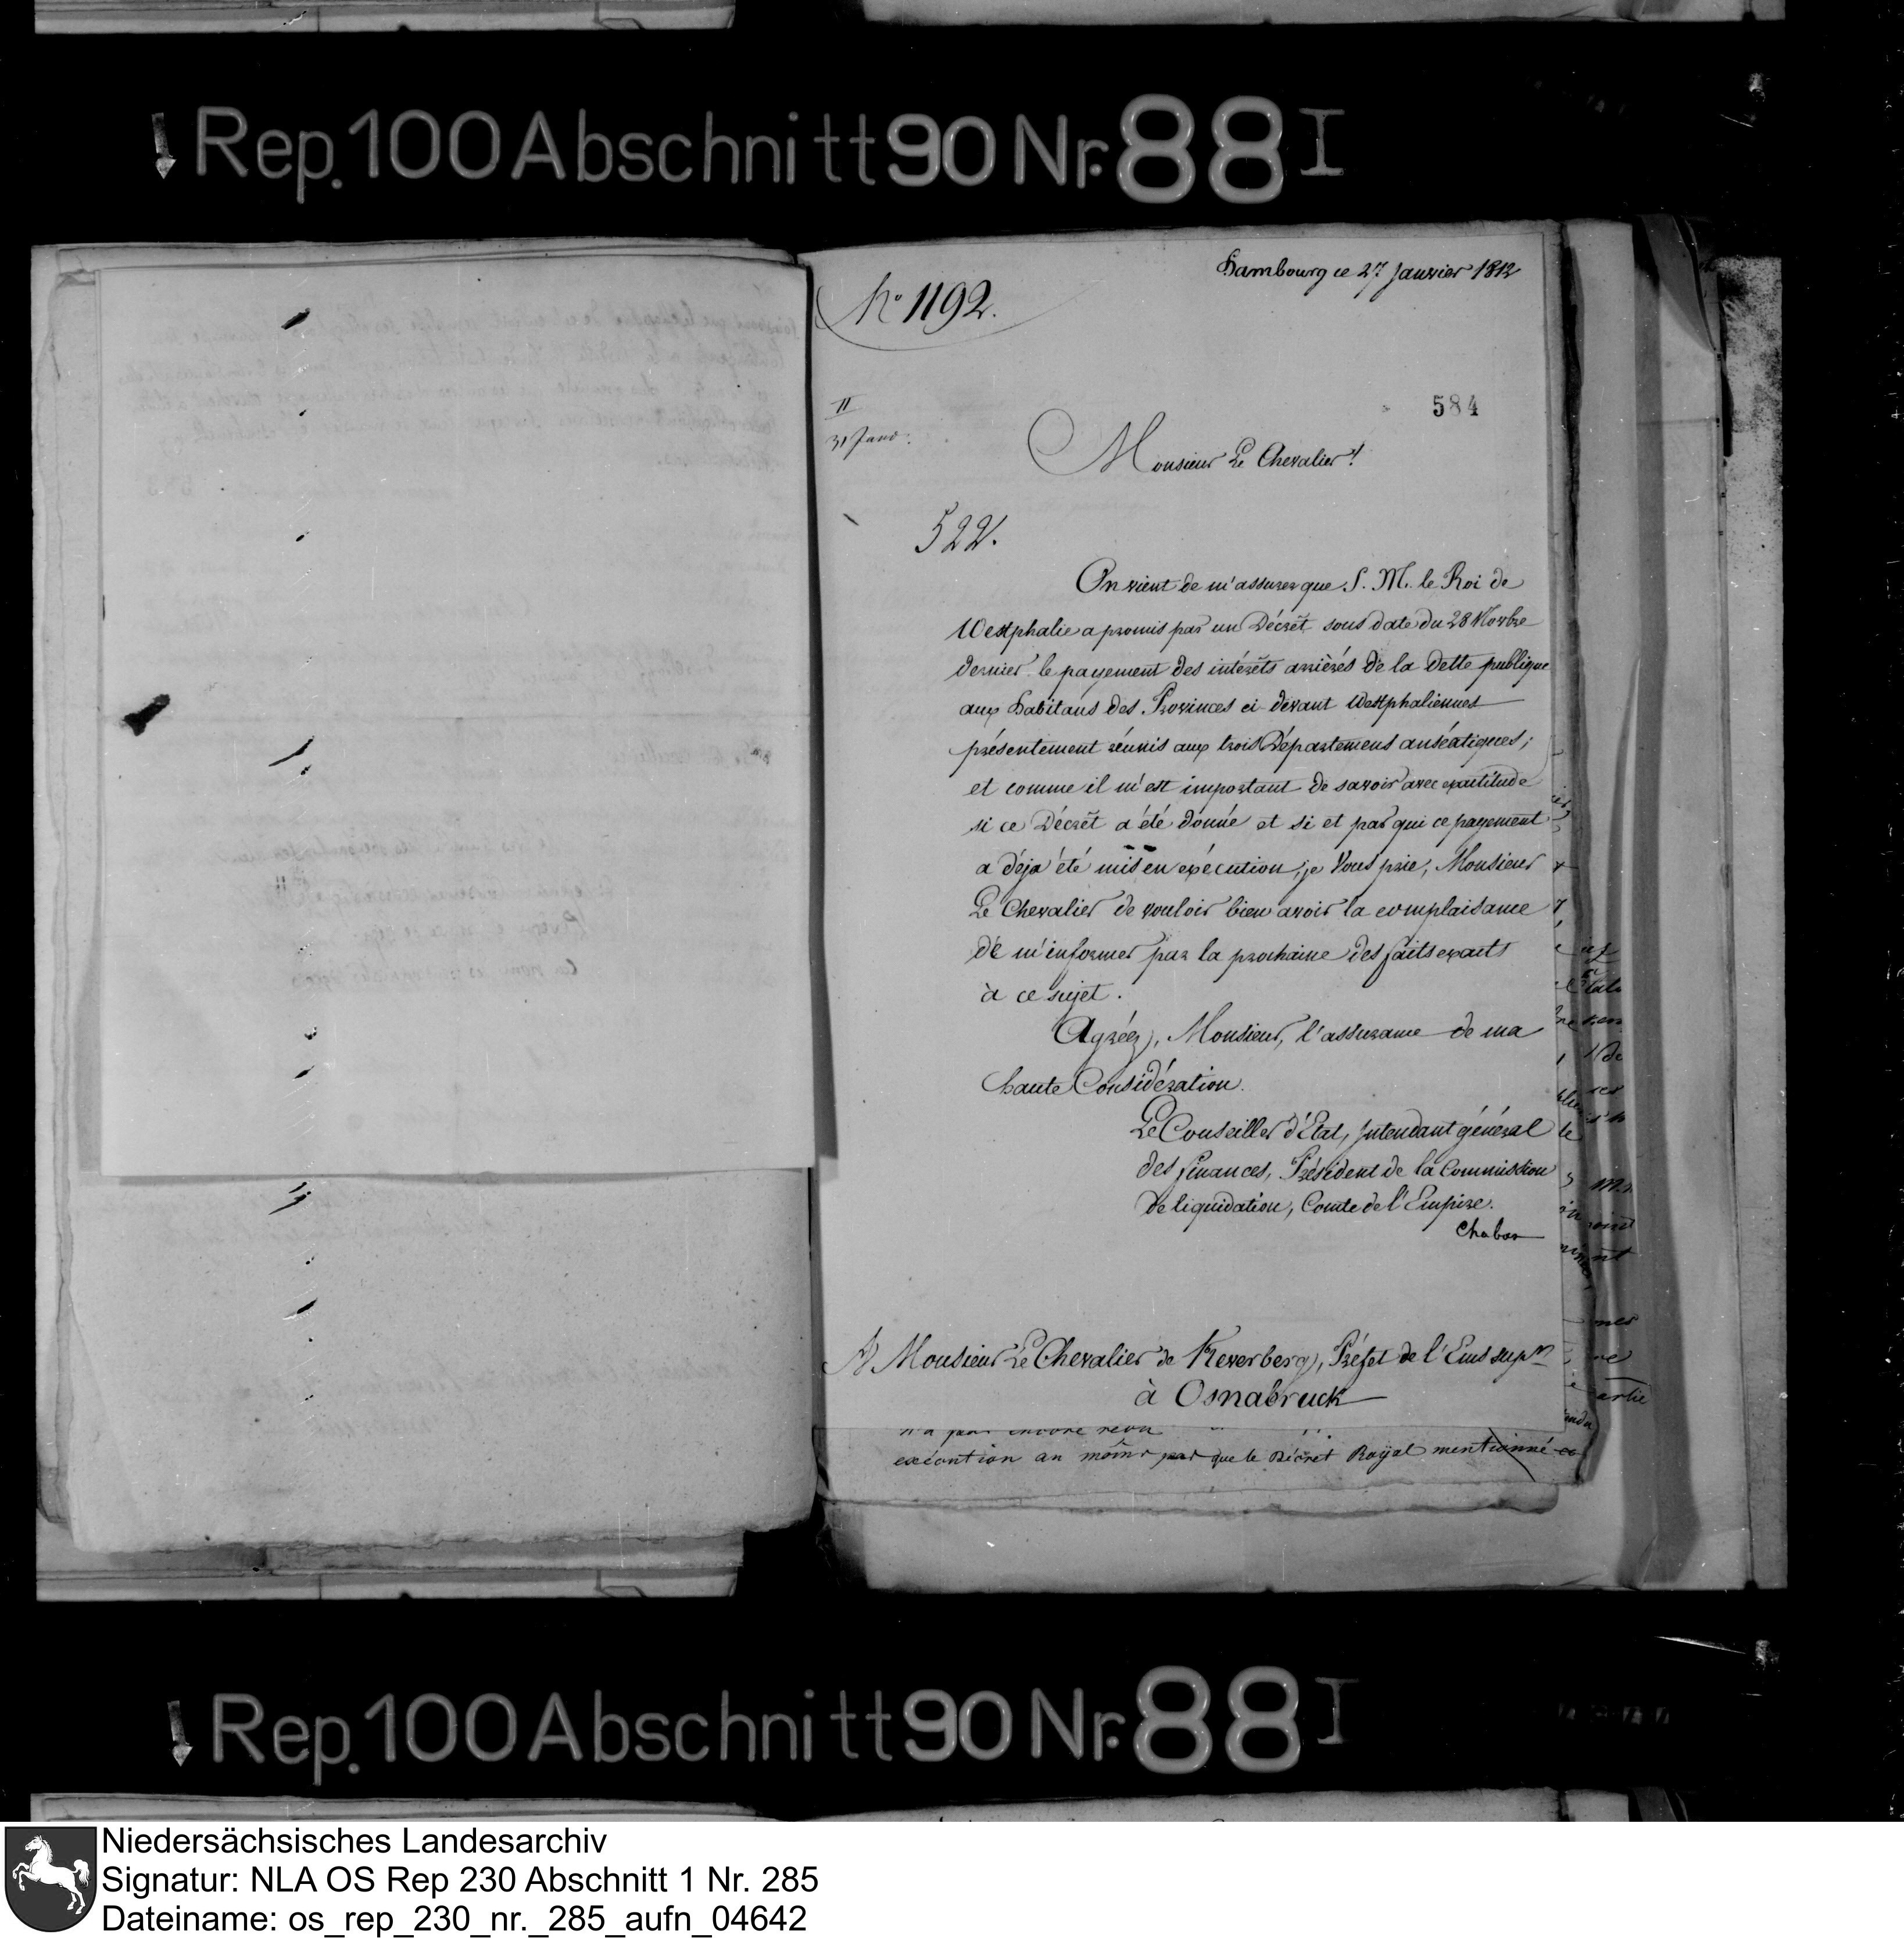 Rep.100 Abschnitt 90 Nr. 88 I
Hambourg ce 27 Janvier 1812
No 1192.
584
II
31 Janv:
Monsieur Le Chevalier!
522.
On vient de m'assurer que S. M. le Roi de
Westphalie a promis par un Décrèt sous date du 28 Novbre
dernier le payement des intérêts arrièrés de la dette publique
aux habitans des Provinces ci-devant Westphaliennes
présentement réunis aux trois Départemens anséatiques;
et comme il m'est important de savoir avec exactitude
si ce Décrèt a été donné et si et par qui ce payement
a déja été mis en exécution, je Vous prie, Monsieur
Le Chevalier de vouloir bien avoir la complaisance
de m'informer par la prochaine des faits exacts
à ce sujet.
Agréez, Monsieur, l'assurance de ma
haute Considération.
Le Conseiller d'Etat, Intendant général
des finances, Président de la Commission
de liquidation, Comte de l'Empire.
Chaban
A Monsieur Le Chevalier de Keverberg, Préfet de l'Ems supr
à Osnabruck
n'a pas encore reçu
exécution au moins par que le Décret Royal mentionné
Rep.100 Abschnitt 90 Nr. 88 I
Niedersächsisches Landesarchiv
Signatur: NLA OS Rep 230 Abschnitt 1 Nr. 285
Dateiname: os_rep_230_nr._285_aufn_04642